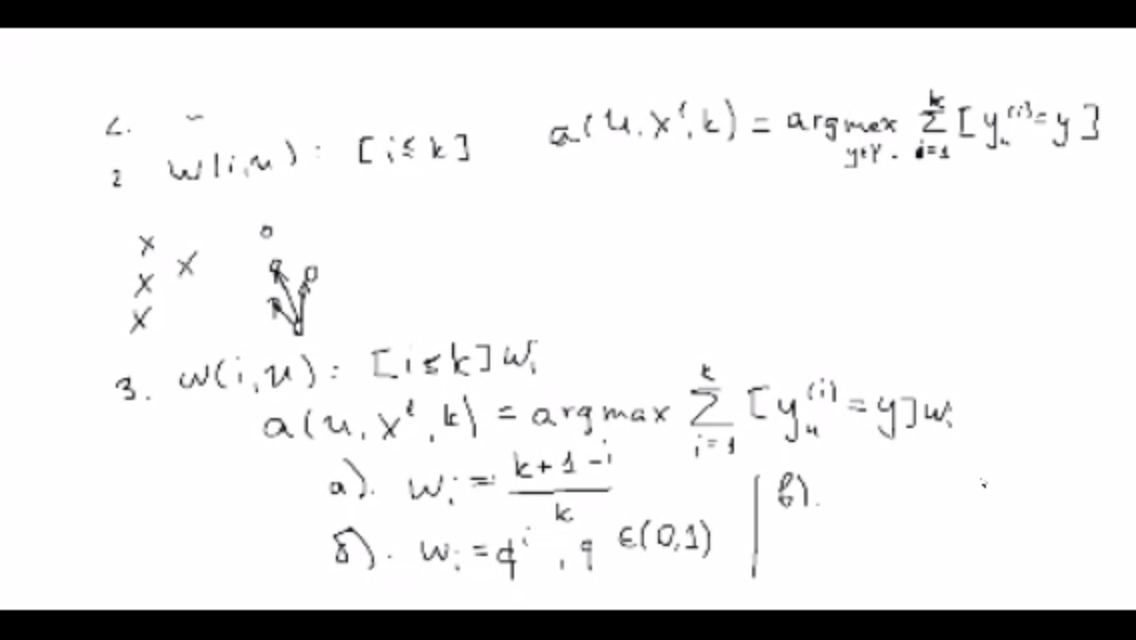 2. w(i,u): [i≤k] a(u, xˡ, k) = arg max_{y∈Y} Σ_{i=1}^{k} [y_u^{(i)} = y]
3. w(i,u): [i≤k] wᵢ
a(u, xˡ, k) = arg max Σ_{i=1}^{k} [y_u^{(i)} = y] wᵢ
а). wᵢ = (k+1-i)/k
б). wᵢ = qⁱ, q ∈(0,1) | в).